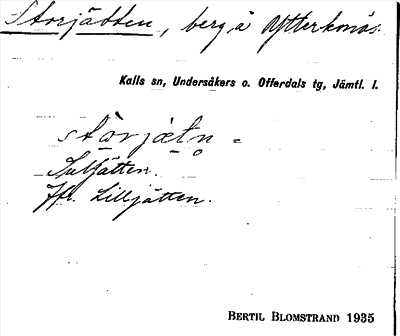 Storjätten, berg å Ytterknös.
Kalls sn, Undersåkers o. Offerdals tg, Jämtl. l.
stòrjætn̥ =
Jfr. Lilljätten.
BERTIL BLOMSTRAND 1935